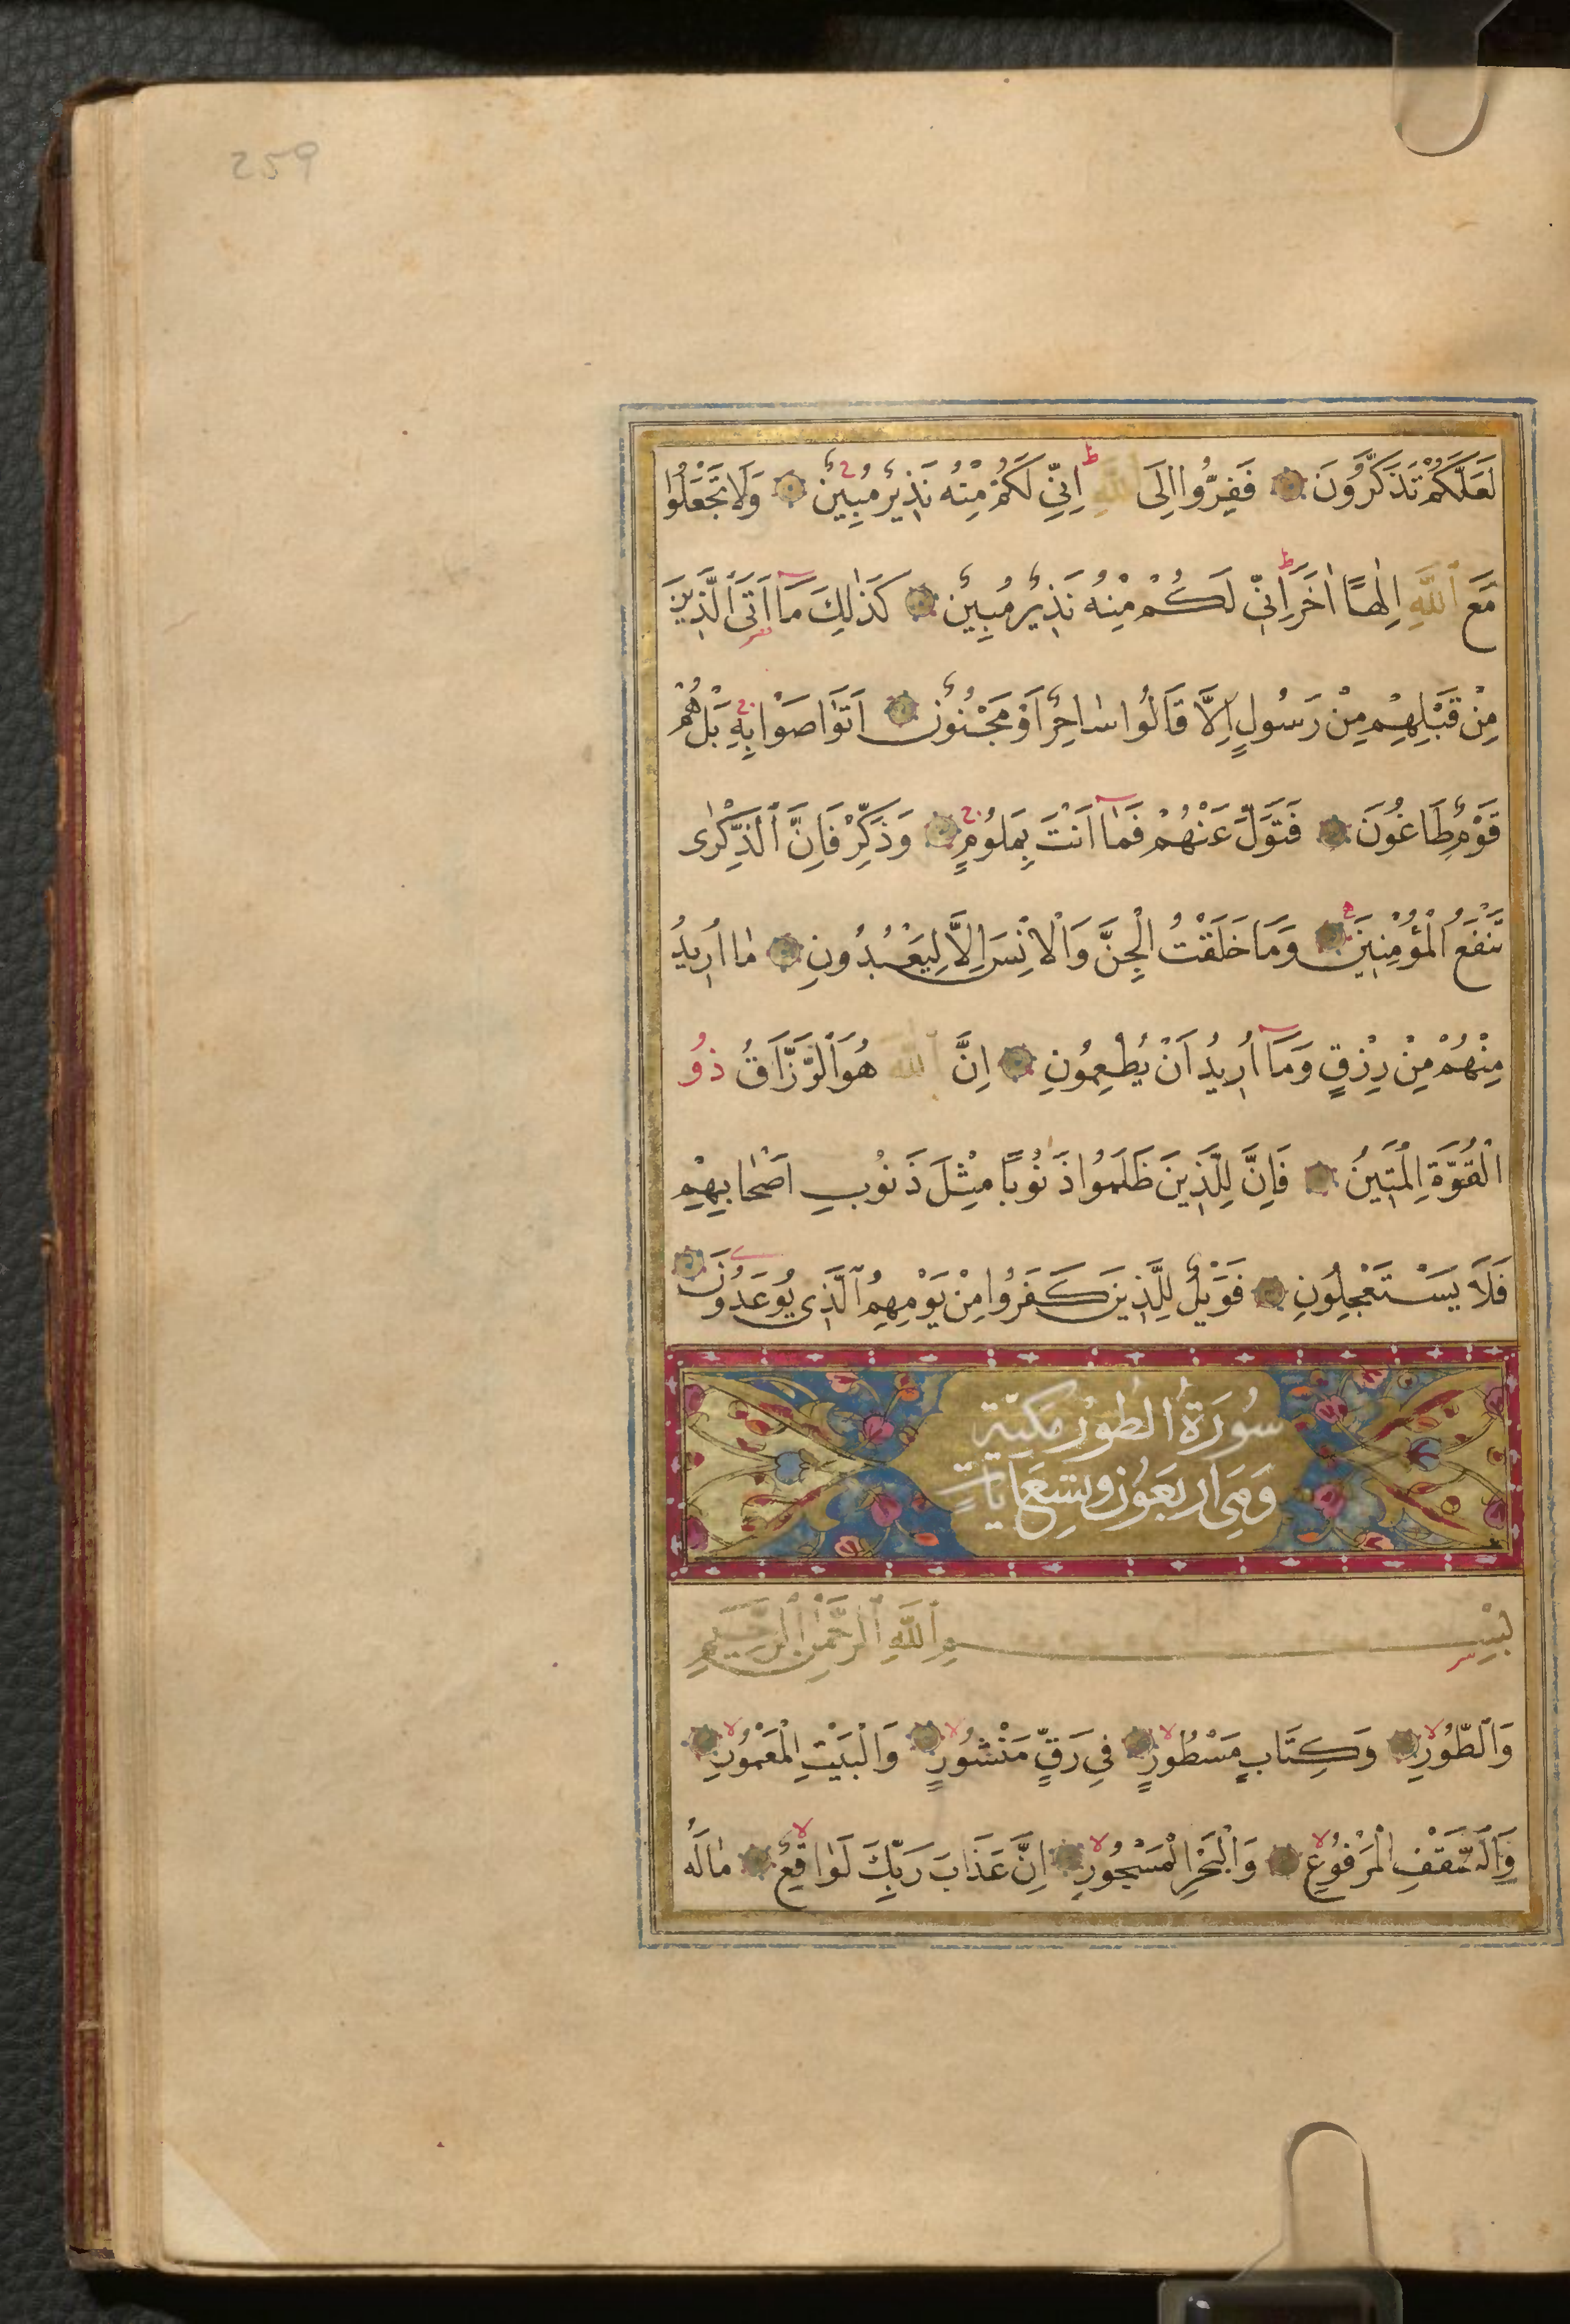 259
لَعَلَّكُمْ تَذَكَّرُونَ فَفِرُّوا اِلَى اللّٰهِ اِنِّي لَكُمْ مِنْهُ نَذِيرٌ مُبِينٌ وَلَا تَجْعَلُوا
مَعَ اللّٰهِ اِلٰهًا اٰخَرَ اِنِّي لَكُمْ مِنْهُ نَذِيرٌ مُبِينٌ كَذٰلِكَ مَآ اَتَى الَّذِينَ
مِنْ قَبْلِهِمْ مِنْ رَسُولٍ اِلَّا قَالُوا سَاحِرٌ اَوْ مَجْنُونٌ اَتَوَاصَوْا بِهِ بَلْ هُمْ
قَوْمٌ طَاغُونَ فَتَوَلَّ عَنْهُمْ فَمَآ اَنْتَ بِمَلُومٍ وَذَكِّرْ فَاِنَّ الذِّكْرٰى
تَنْفَعُ الْمُؤْمِنِينَ وَمَا خَلَقْتُ الْجِنَّ وَالْاِنْسَ اِلَّا لِيَعْبُدُونِ مَا اُرِيدُ
مِنْهُمْ مِنْ رِزْقٍ وَمَآ اُرِيدُ اَنْ يُطْعِمُونِ اِنَّ اللّٰهَ هُوَ الرَّزَّاقُ ذُو
الْقُوَّةِ الْمَتِينُ فَاِنَّ لِلَّذِينَ ظَلَمُوا ذَنُوبًا مِثْلَ ذَنُوبِ اَصْحَابِهِمْ
فَلَا يَسْتَعْجِلُونِ فَوَيْلٌ لِلَّذِينَ كَفَرُوا مِنْ يَوْمِهِمُ الَّذِي يُوعَدُونَ
سُورَةُ الطُّورِ مَكِّيَّة
وَهِيَ اَرْبَعُونَ وَتِسْعَ اٰيَاتٍ
بِسْمِ اللّٰهِ الرَّحْمٰنِ الرَّحِيمِ
وَالطُّورِ وَكِتَابٍ مَسْطُورٍ فِي رَقٍّ مَنْشُورٍ وَالْبَيْتِ الْمَعْمُورِ
وَالسَّقْفِ الْمَرْفُوعِ وَالْبَحْرِ الْمَسْجُورِ اِنَّ عَذَابَ رَبِّكَ لَوَاقِعٌ مَا لَهُ